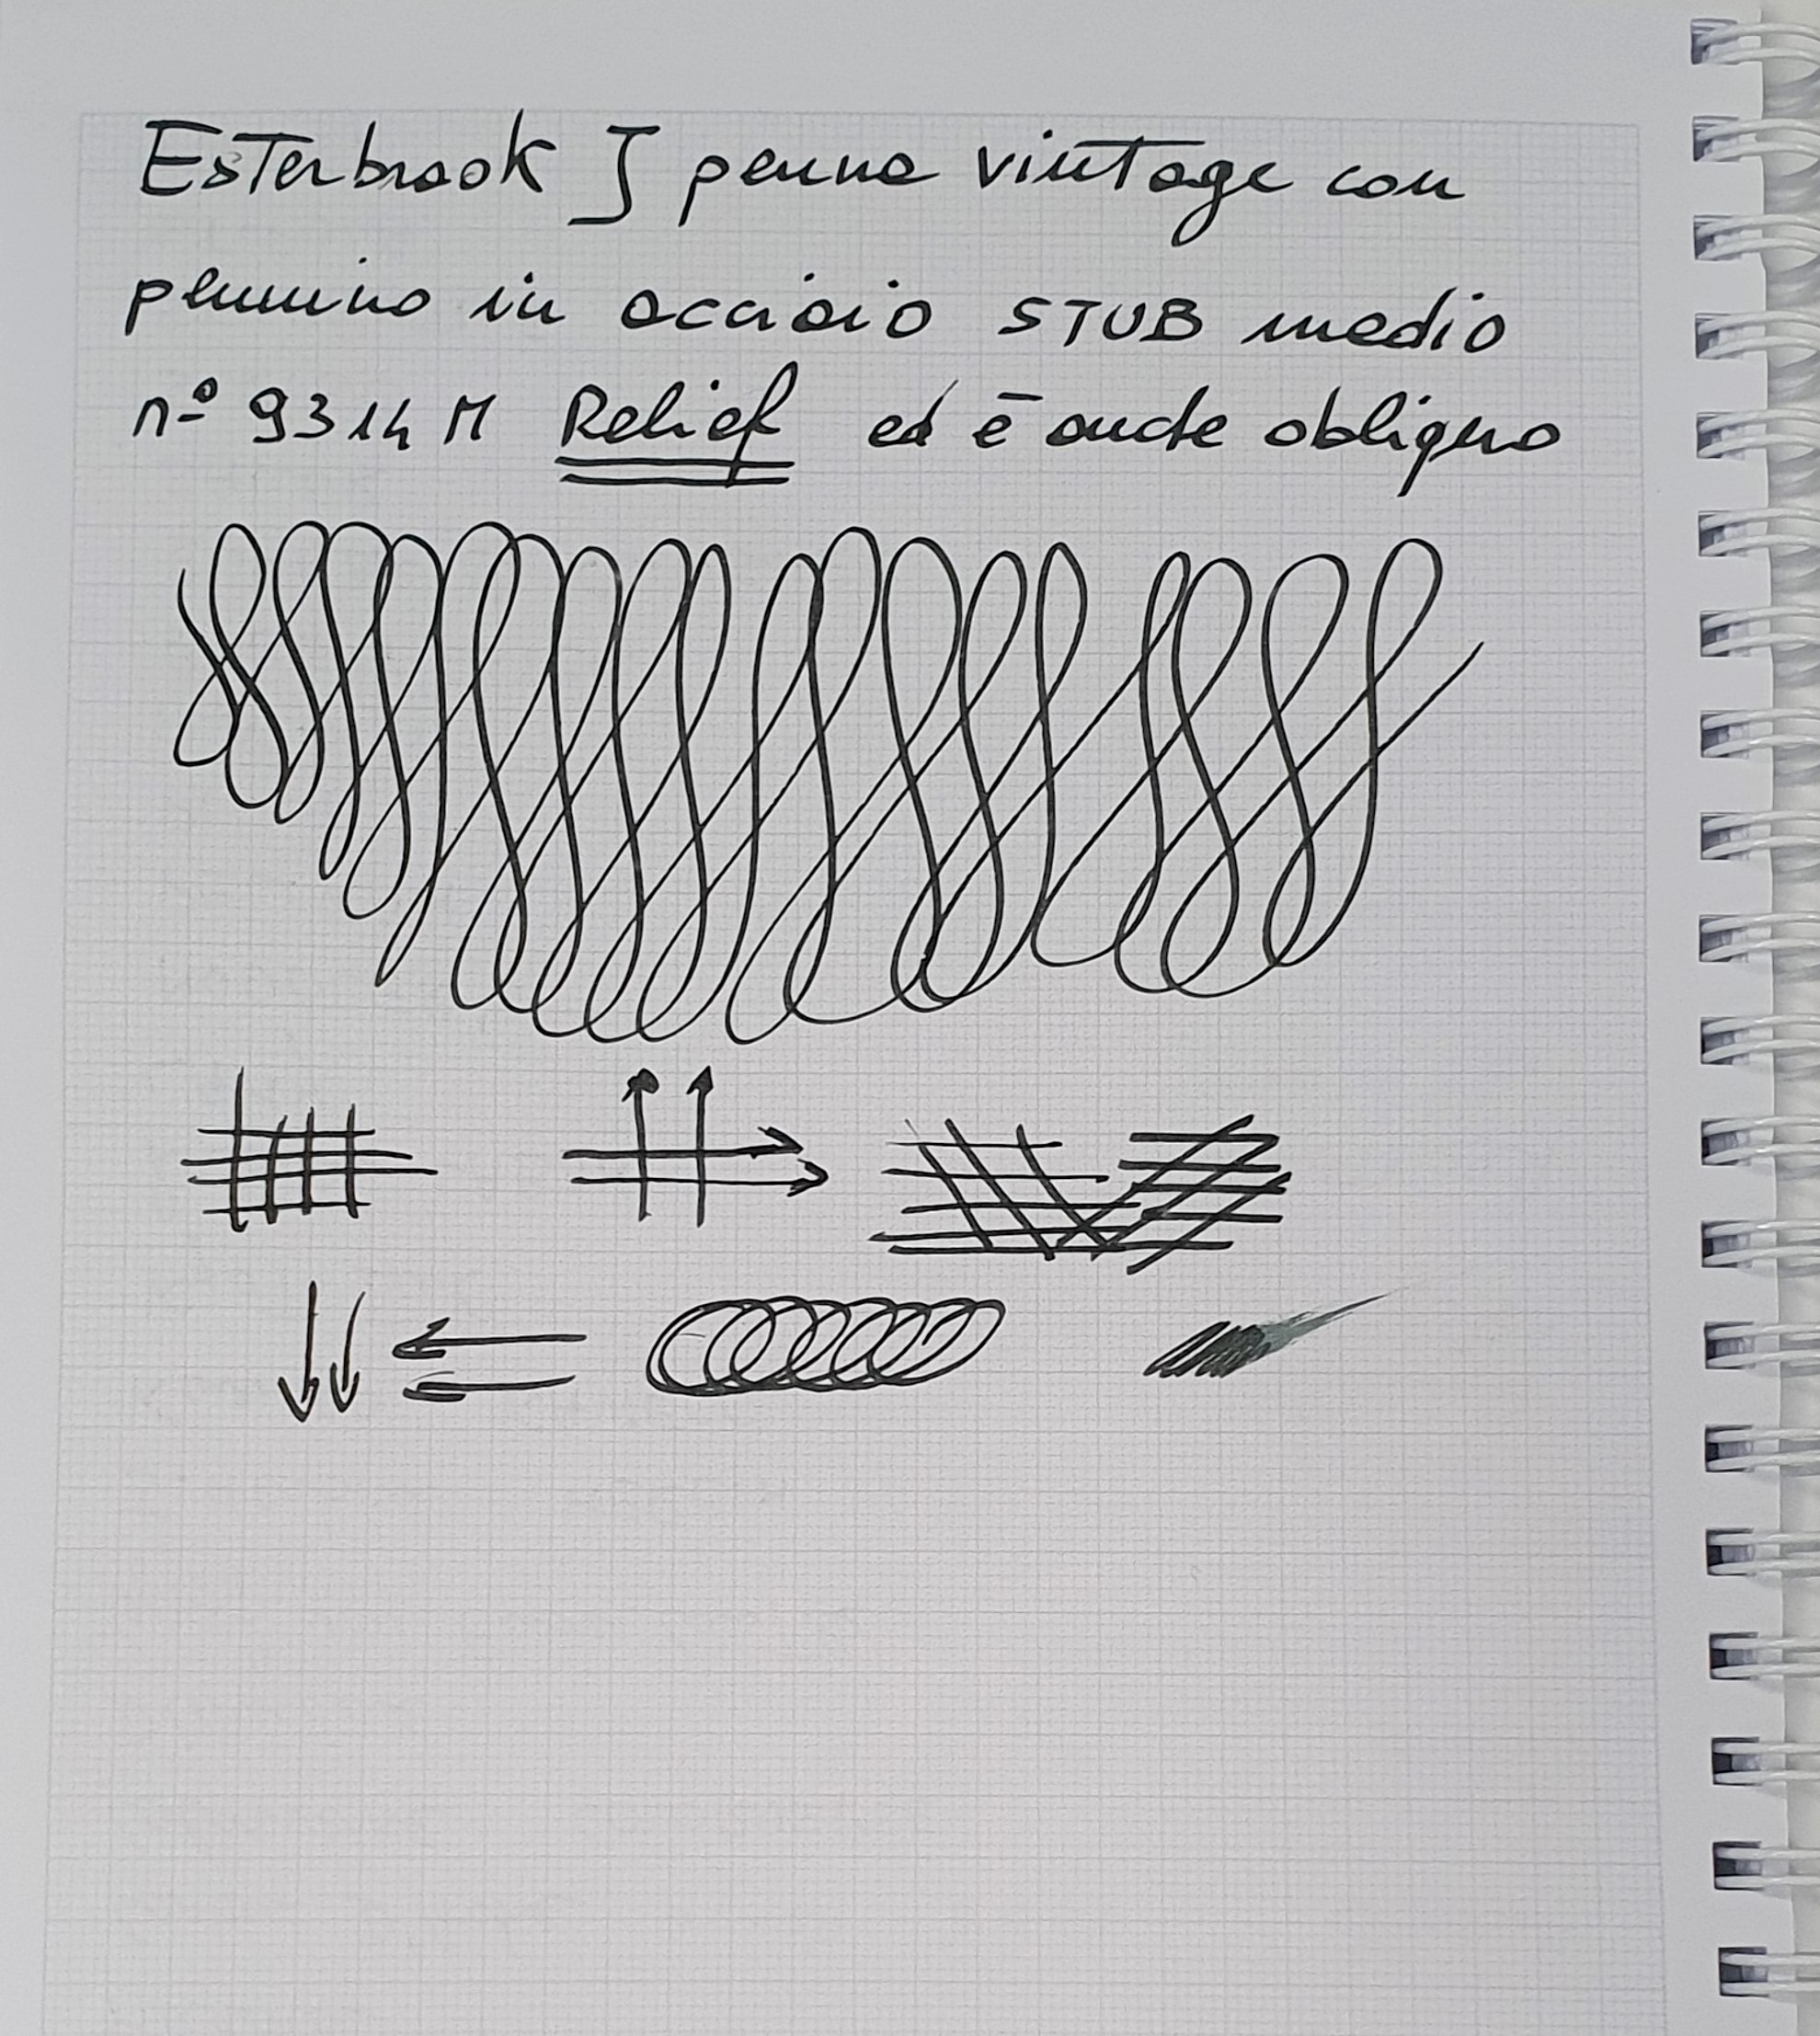 Esterbrook J penna vintage con
pennino in acciaio STUB medio
n° 9314 M Relief ed è anche obliquo